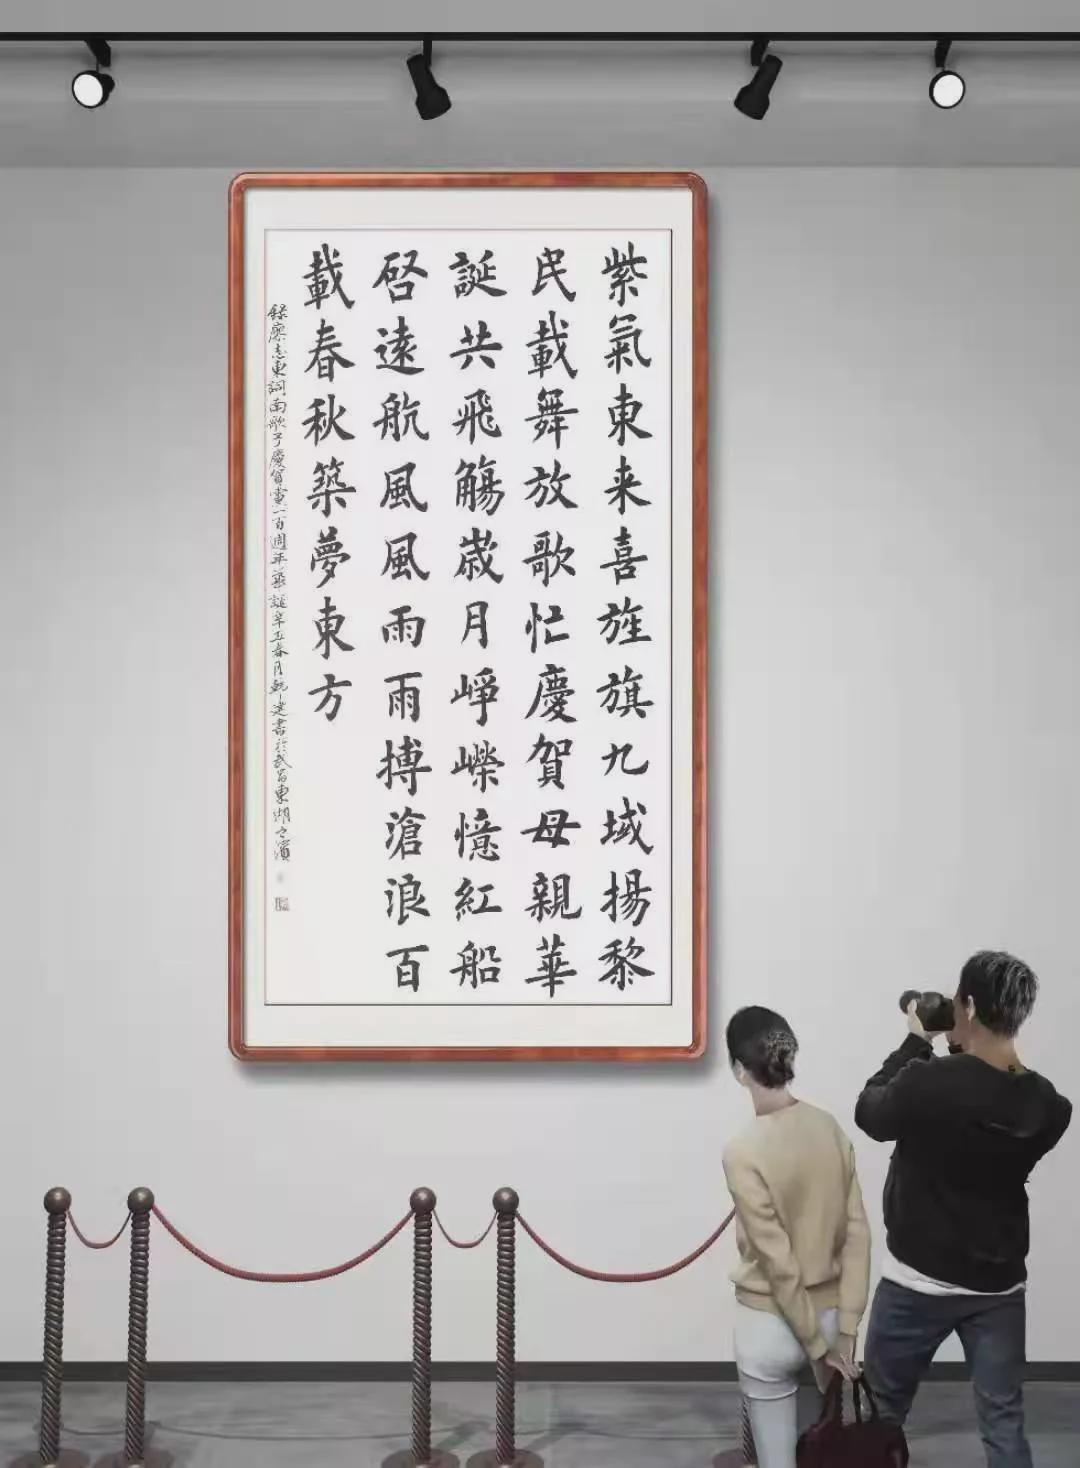 紫氣東来喜旌旗九域揚黎
民載舞放歌忙慶賀母親華
誕共飛觴歲月崢嶸憶紅船
啓遠航風風雨雨搏滄浪百
載春秋築夢東方
錄廖志東詞南歌子慶賀黨一百週年華誕辛丑春月乾建書於武昌東湖之濱